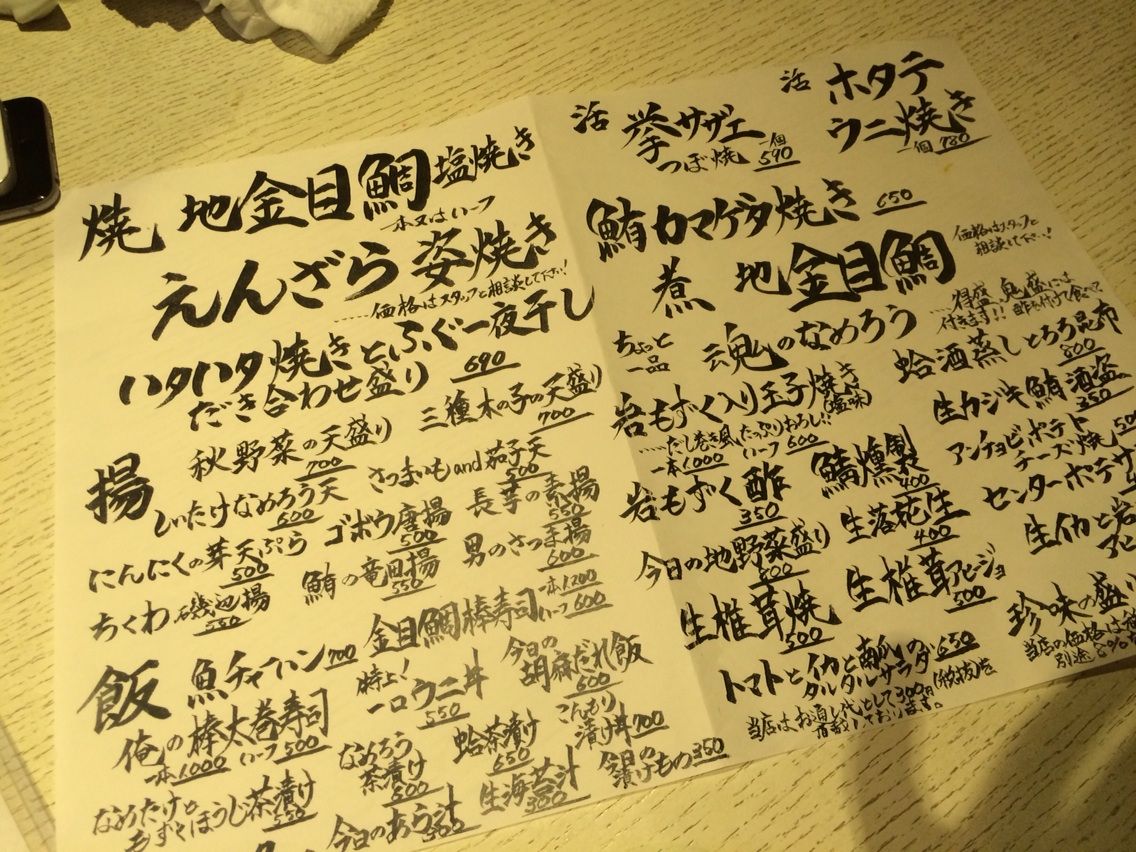 焼 地金目鯛塩焼き
一本又はハーフ
えんざら姿焼き
……価格はスタッフと相談して下さい!
ハタハタ焼きとふぐ一夜干し
だき合わせ盛り 690
揚
秋野菜の天盛り 700
三種木の子の天盛り 700
しいたけなめろう天 600
さつまいもand茄子天 500
にんにくの芽天ぷら 500
ゴボウ唐揚 500
長芋の素揚 550
ちくわ磯辺揚 550
鮪の竜田揚 550
男のさつま揚 600
飯
魚チャーハン 700
金目鯛棒寿司 一本1,200
ハーフ 600
俺の棒太巻寿司
一本1,000 ハーフ500
特上
一口ウニ丼 550
今日の
胡麻だれ飯 600
なめたけと
もずくほうじ茶漬け 550
なめろう
茶漬け 600
蛤茶漬け 650
こんもり
漬け丼 700
今日のあら汁 300
生海苔汁 300
今日の
漬けもの 350
活 拳サザエ
つぼ焼 一個 590
活 ホタテ
ウニ焼き
一個 780
鮪カマゲタ焼き 650
煮 地金目鯛
価格はスタッフと
相談して下さい…!
ちょっと
一品
魂のなめろう
……得盛、鬼盛には
付きます!! 酢も付けて食べて
岩もずく入り玉子焼き(塩味)
……だし巻き風、たっぷりおろし!!
一本1,000 ハーフ600
蛤酒蒸しとろろ昆布 800
岩もずく酢 350
鯖燻製 400
生カジキ鮪酒盗 350
アンチョビポテト
チーズ焼 500
今日の地野菜盛り 800
生落花生 400
センターポテサ
生椎茸焼 500
生椎茸アヒージョ 500
生イカと岩
アヒ
トマトとイカと南蛮の
タルタルサラダ 650
珍味の盛り
当店はお通し代として300円(税抜)を
頂戴しております。
当店の価格は
別途8%